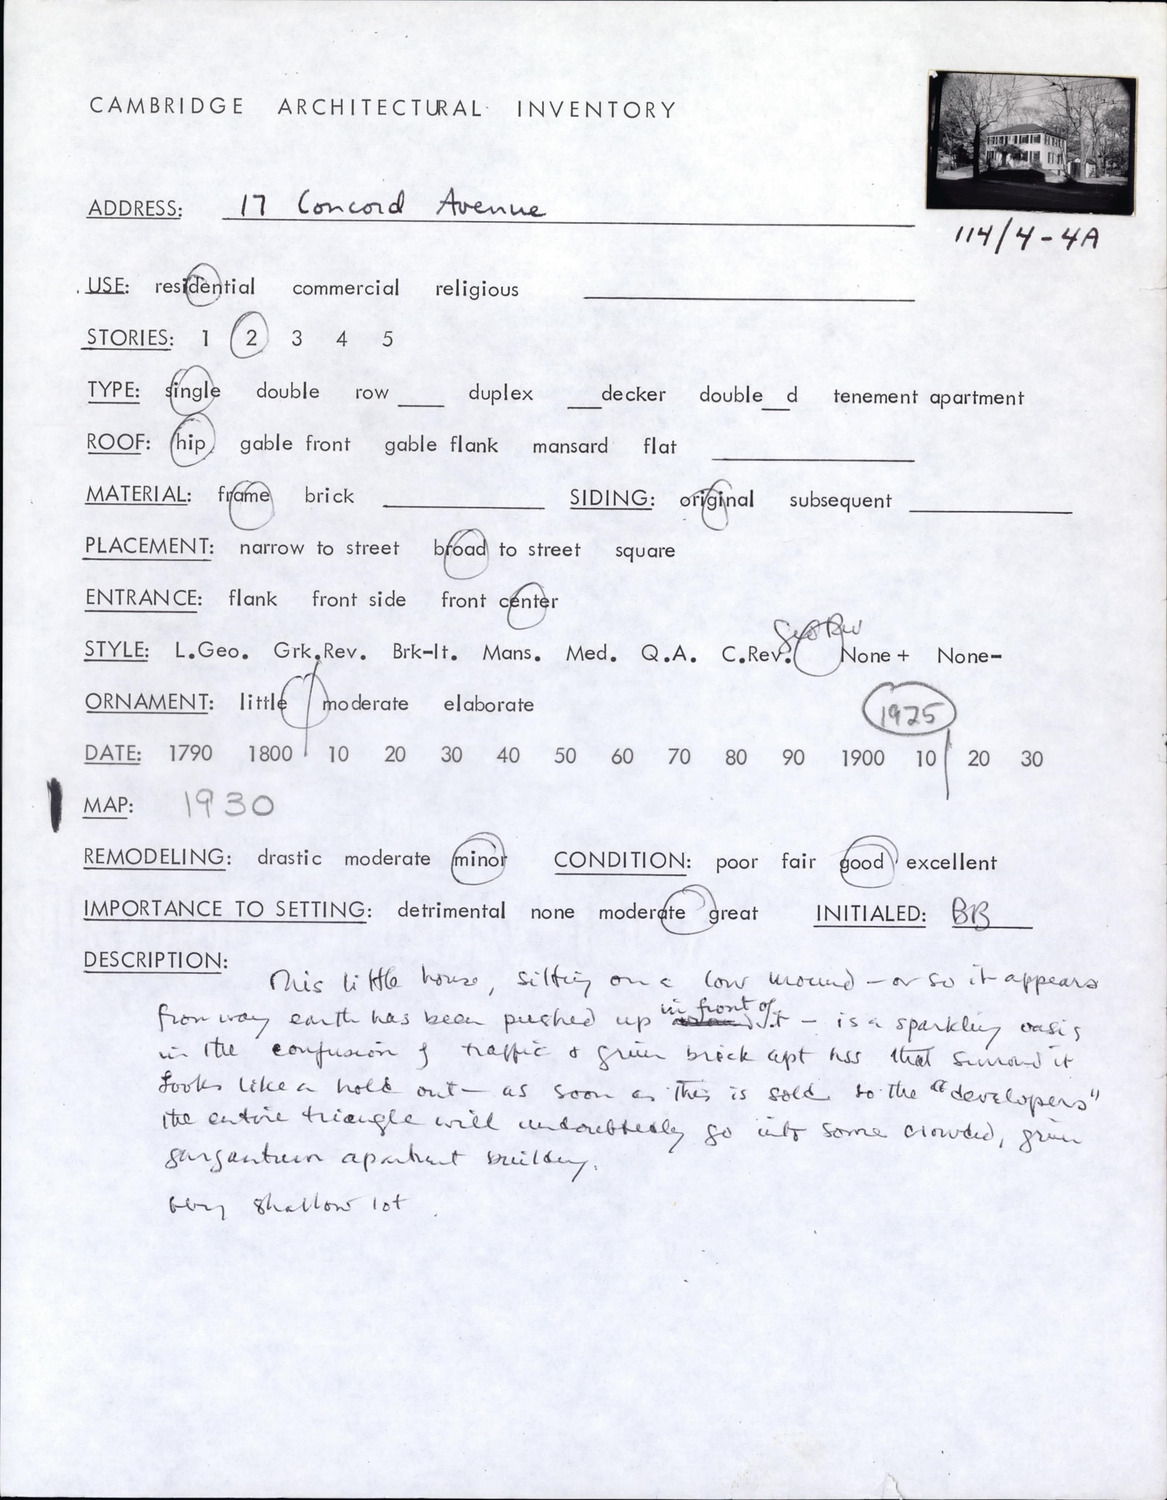 CAMBRIDGE ARCHITECTURAL INVENTORY
114/4-4A
ADDRESS: 17 Concord Avenue
USE: residential commercial religious
STORIES: 1 2 3 4 5
TYPE: single double row ___ duplex ___decker double__d tenement apartment
ROOF: hip gable front gable flank mansard flat
MATERIAL: frame brick SIDING: original subsequent
PLACEMENT: narrow to street broad to street square
ENTRANCE: flank front side front center
Geo Rev
STYLE: L.Geo. Grk.Rev. Brk-It. Mans. Med. Q.A. C.Rev. None+ None-
ORNAMENT: little moderate elaborate
1925
DATE: 1790 1800 10 20 30 40 50 60 70 80 90 1900 10 20 30
MAP: 1930
REMODELING: drastic moderate minor CONDITION: poor fair good excellent
IMPORTANCE TO SETTING: detrimental none moderate great INITIALED: BB
DESCRIPTION:
This little house, sitting on a low mound - or so it appears
from way earth has been pushed up in front of it - is a sparkling oasis
in the confusion of traffic & grim brick apt hss that surround it
Looks like a hold out - as soon as this is sold to the "developers"
the entire triangle will undoubtedly go into some crowded, grim
gargantuan apartment building.
Very shallow lot